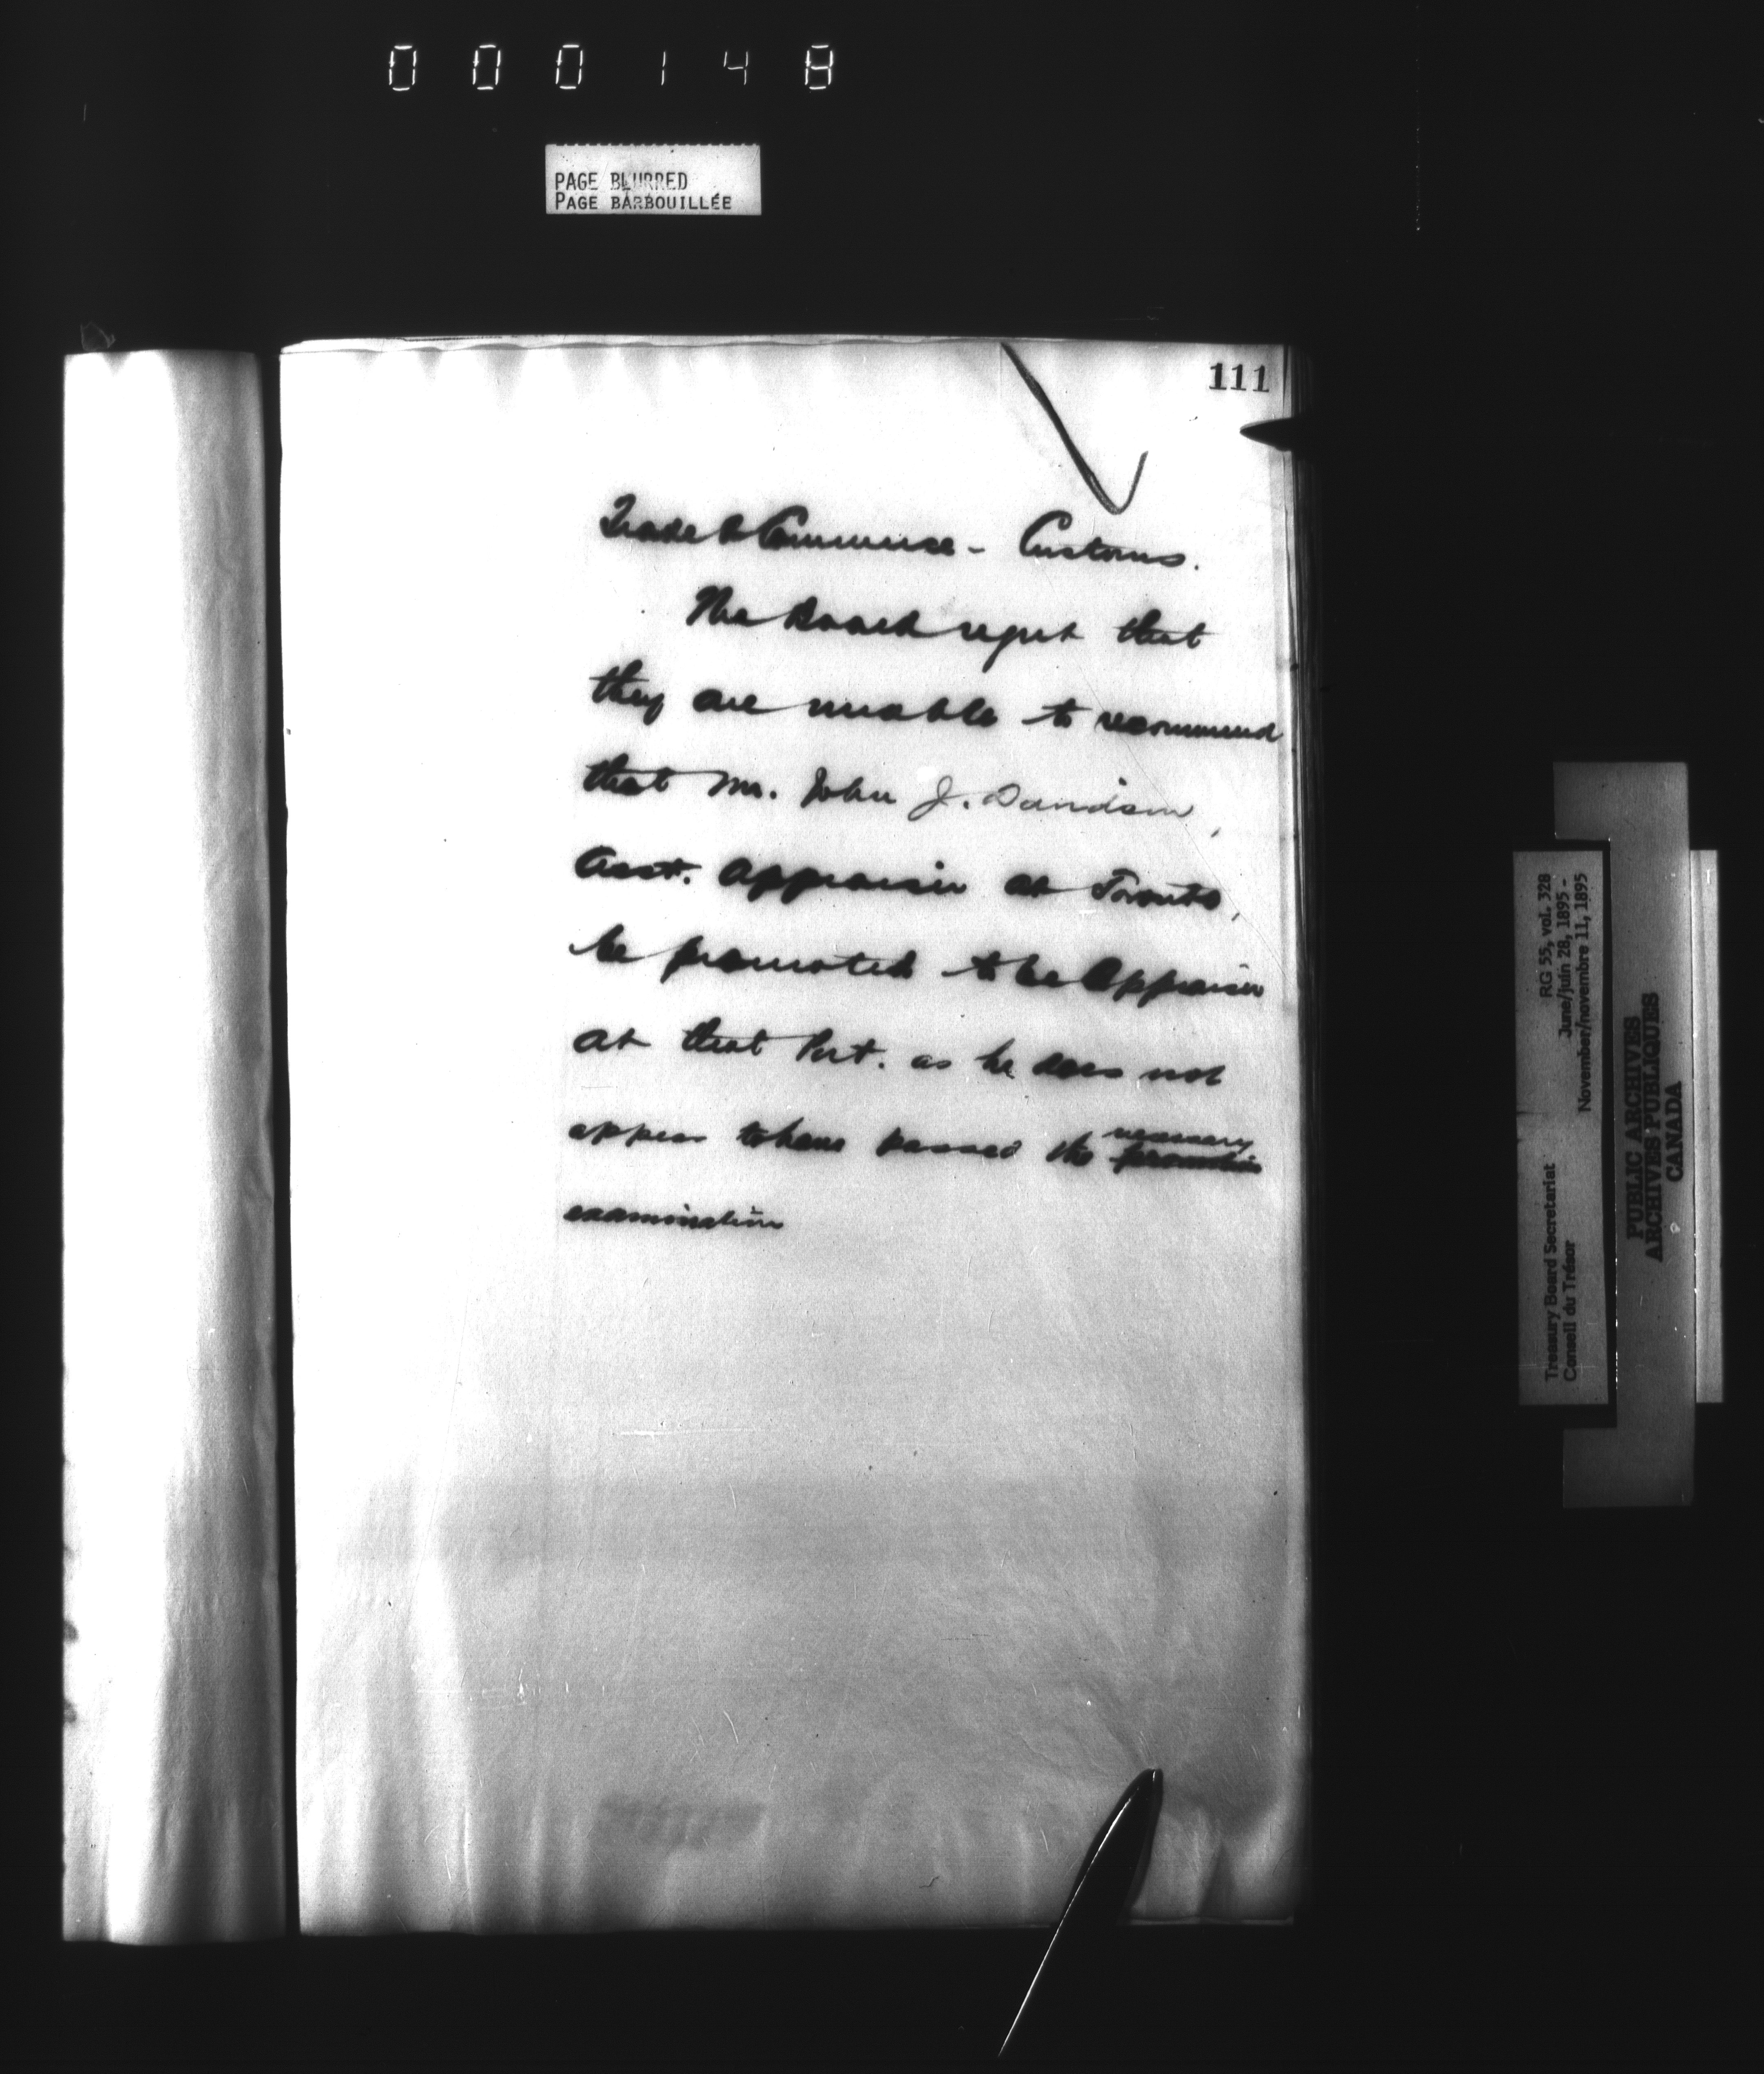 000148
PAGE BLURRED
PAGE BARBOUILLÉE
111
Trade & Commerce - Customs.
The Board regret that
they are unable to recommend
that Mr. John J. Davidson,
Asst. Appraiser at Toronto,
be promoted to be Appraiser
at that Port. as he does not
necessary
appear to have passed the
examination
RG 55, vol. 328
June/juin 28, 1895 -
November/novembre 11, 1895
Treasury Board Secretariat
Conseil du Trésor
PUBLIC ARCHIVES
ARCHIVES PUBLIQUES
CANADA